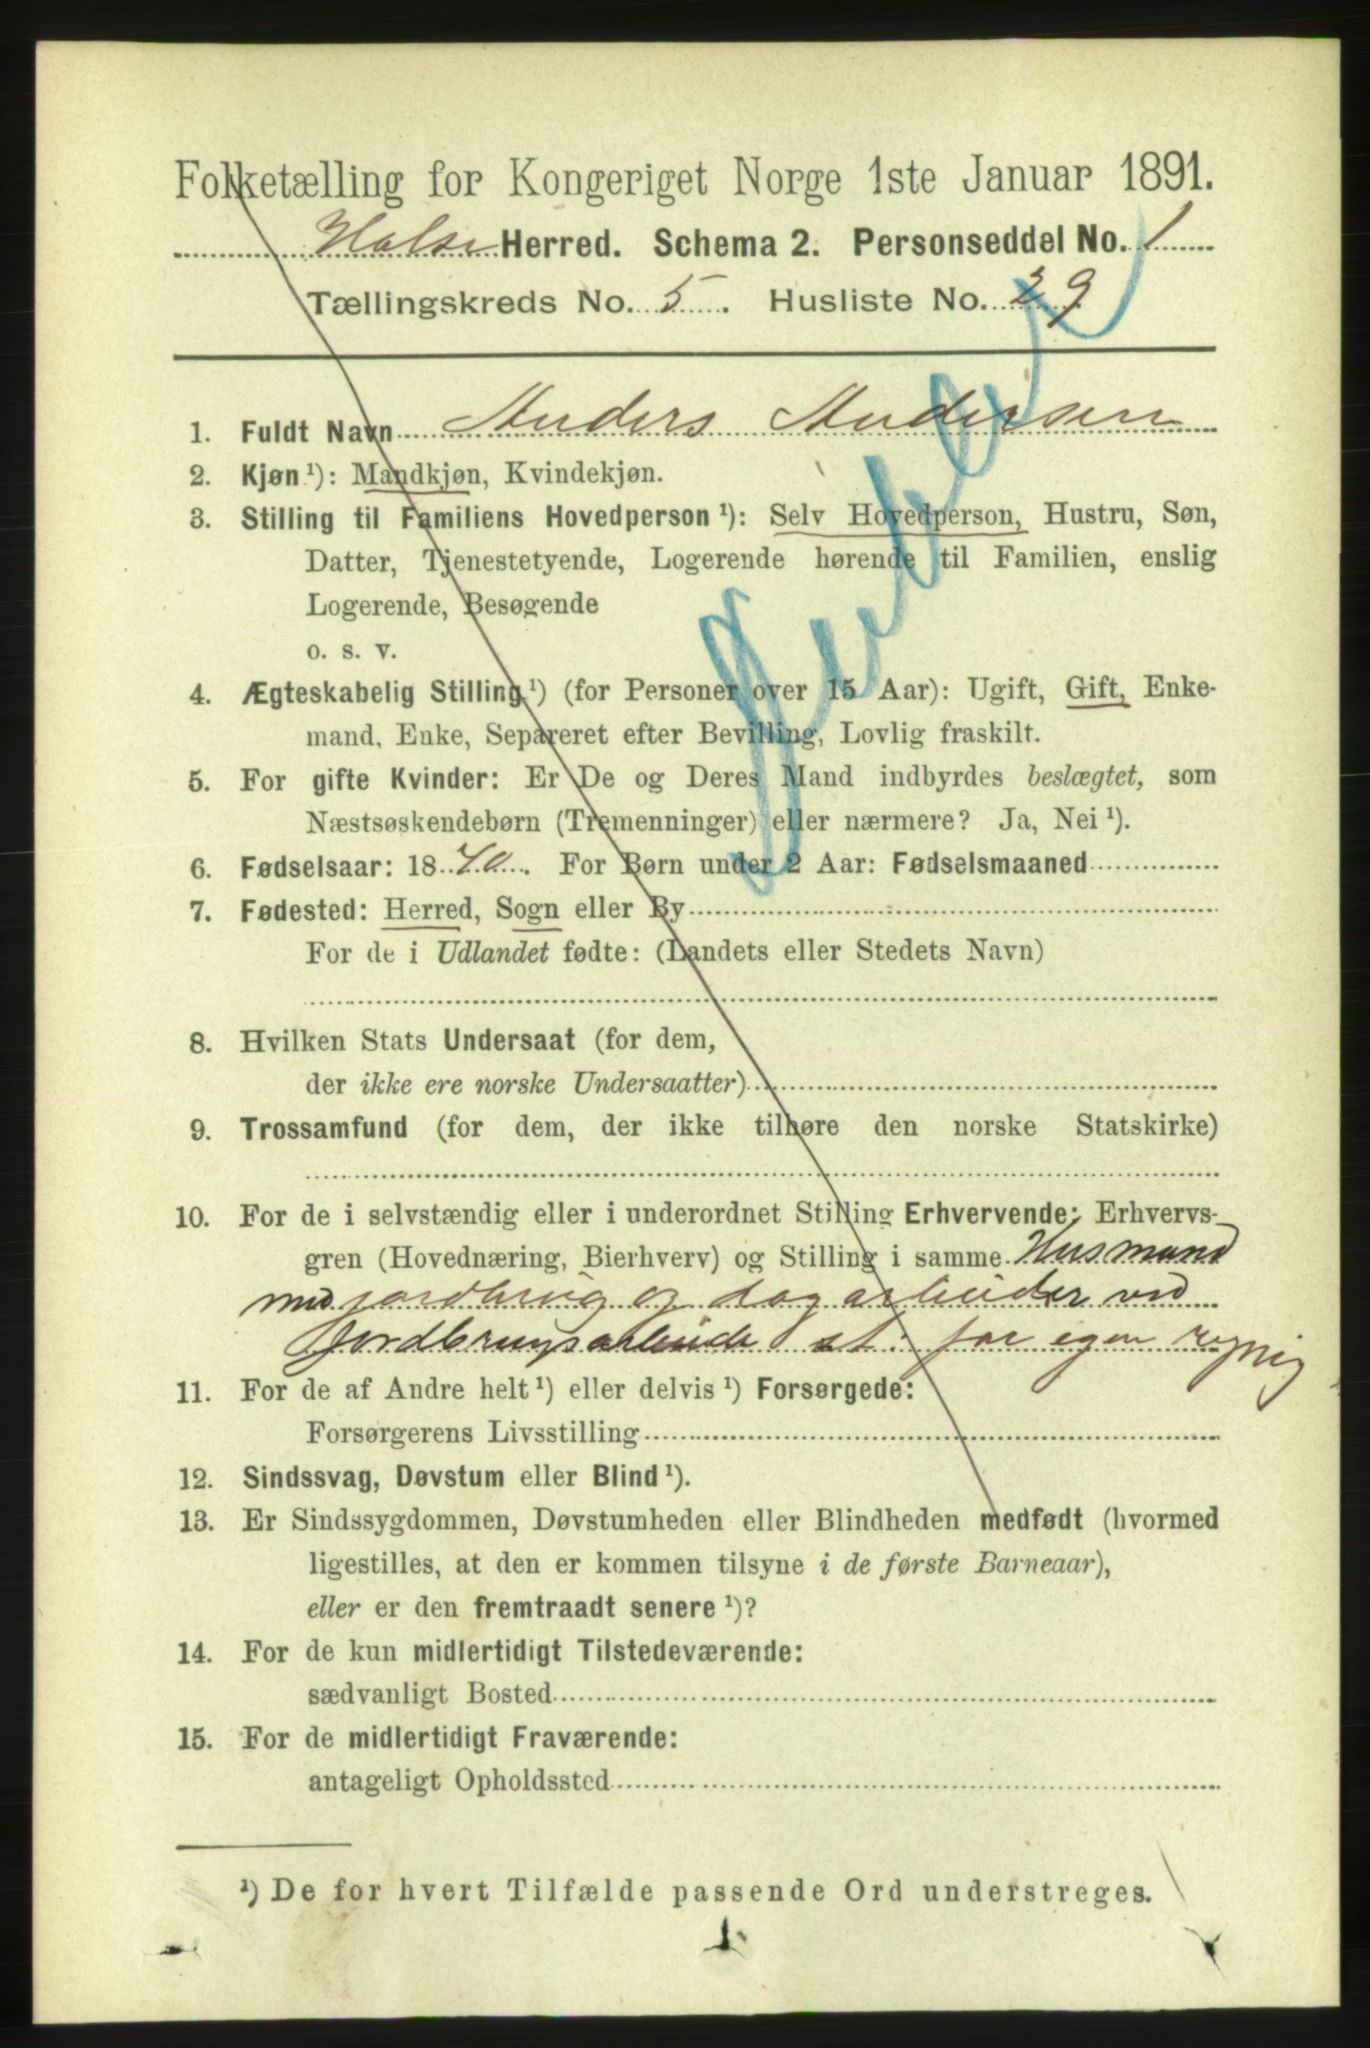 Folketælling for Kongeriget Norge 1ste Januar 1891.
Halse Herred. Schema 2. Personseddel No. 1
Tællingskreds No. 5. Husliste No. 29
1. Fuldt Navn Anders Andersen
2. Kjøn ¹): Mandkjøn, Kvindekjøn.
3. Stilling til Familiens Hovedperson ¹): Selv Hovedperson, Hustru, Søn,
Datter, Tjenestetyende, Logerende hørende til Familien, enslig
Logerende, Besøgende
o. s. v.
4. Ægteskabelig Stilling ¹) (for Personer over 15 Aar): Ugift, Gift, Enke-
mand, Enke, Separeret efter Bevilling, Lovlig fraskilt.
5. For gifte Kvinder: Er De og Deres Mand indbyrdes beslægtet, som
Næstsøskendebørn (Tremenninger) eller nærmere? Ja, Nei ¹).
6. Fødselsaar: 18 . For Børn under 2 Aar: Fødselsmaaned
7. Fødested: Herred, Sogn eller By
For de i Udlandet fødte: (Landets eller Stedets Navn)
8. Hvilken Stats Undersaat (for dem,
der ikke ere norske Undersaatter)
9. Trossamfund (for dem, der ikke tilhøre den norske Statskirke)
10. For de i selvstændig eller i underordnet Stilling Erhvervende: Erhvervs-
gren (Hovednæring, Bierhverv) og Stilling i samme Husmand
med jordbrug og dagarbeider ved
Jordbrugsarbeide st. for egen regnig
11. For de af Andre helt ¹) eller delvis ¹) Forsørgede:
Forsørgerens Livsstilling
12. Sindssvag, Døvstum eller Blind ¹).
13. Er Sindssygdommen, Døvstumheden eller Blindheden medfødt (hvormed
ligestilles, at den er kommen tilsyne i de første Barneaar),
eller er den fremtraadt senere ¹)?
14. For de kun midlertidigt Tilstedeværende:
sædvanligt Bosted
15. For de midlertidigt Fraværende:
antageligt Opholdssted
¹) De for hvert Tilfælde passende Ord understreges.